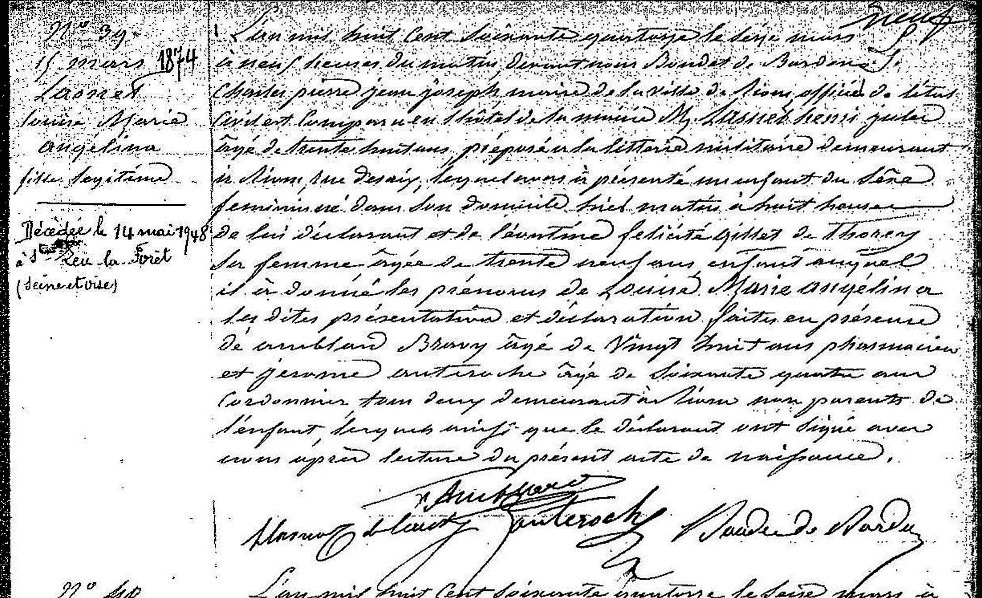 N° 39
15 mars 1874
Louise Marie
Angélina
fille légitime
Décédée le 14 mai 1948
à St Leu la Forêt
(Seine et Oise)
L'an mil huit cent soixante quatorze le seize mars
à neuf heures du matin devant nous Baudet de Bardon
Charles pierre jean joseph, maire de la ville de Riom officier de l'état
Civil est Comparu en l'hôtel de la mairie M.
âgé de trente huit ans préposé à la litterie militaire demeurant
à Riom, rue desaix, lequel nous à présenté un enfant du Sèxe
feminin né dans son domicile hier matin à huit heures
de lui déclarant et de félicité Gillet de Thorey
Sa femme âgée de trente neuf ans enfant auquel
il à donné les prénoms de Louise Marie angelina
les dites présentation et déclaration faites en présence
de amblard Bravy âgé de Vingt huit ans pharmacien
et jérome auteroche âgé de Soixante quatre ans
Cordonnier tous deux demeurant à Riom non parents de
l'enfant, lesquels ainsi que le déclarant ont signé avec
nous après lecture du présent acte de naissance.
Amblard
Auteroche
N° 40
L'an mil huit cent soixante quatorze le seize mars à